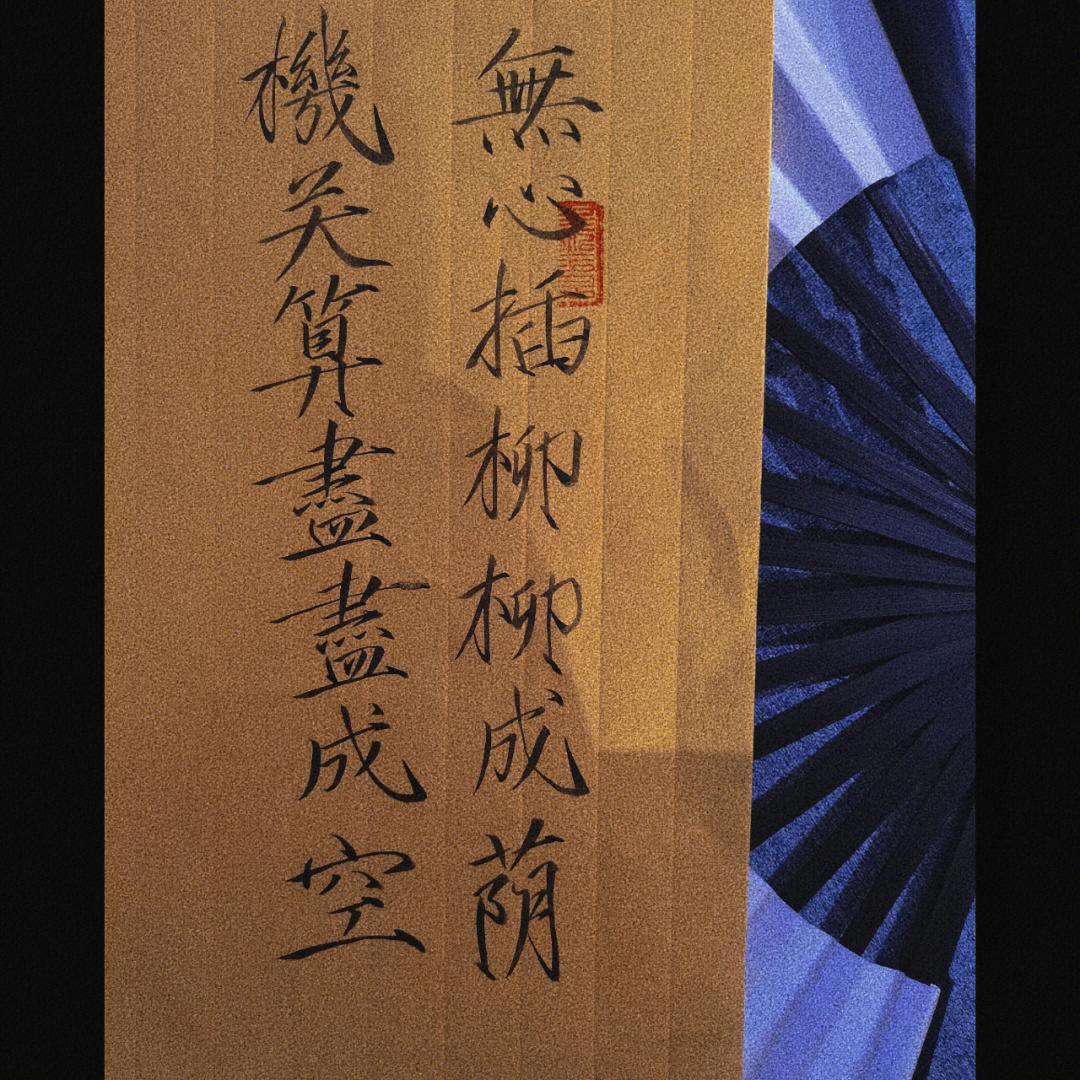 無心插柳柳成荫
機关算盡盡成空